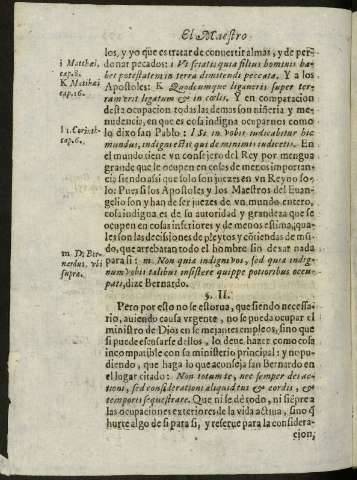 El Maestro
los, y yo que es tratar de conuertir almas, y de per-
donar pecados: i Vt sciatis quia filius hominis ha-
bet potestatem in terra dimitendi peccata. Y a los
Apostoles: K Quodcumque ligaueris super ter-
ram erit legatum & in cœlis. Y en comparacion
desta ocupacion todas las demas son niñeria y me-
nudencia, en que es cosa indigna ocuparnos como
lo dixo san Pablo: l Si in vobis iudicabitur hic
mundus, indigni estis qui de minimis iudicetis. En
el mundo tiene vn consejero del Rey por mengua
grande que le ocupen en cosas de menos importan-
cia siendo assi que solo son juezes en vn Reyno so-
lo: Pues si los Apostoles y los Maestros del Euan-
gelio son y han de ser juezes de vn mundo entero,
cosa indigna es de su autoridad y grandeza que se
ocupen en cosas inferiores y de menos estima, qua-
les son las decisiones de pleytos y cõtiendas de mũ-
do, que arrebatan todo el hombre sin dexar nada
para si: m Non quia indigni vos, sed quia indig-
num vobis talibus insistere quippe potioribus occu-
pati, dize Bernardo.
§. II.
Pero por esto no se estorua, que siendo necessa-
rio, auiendo causa vrgente, no se pueda ocupar el
ministro de Dios en semejantes empleos, sino que
si puede escusarse dellos, lo deue hazer como cosa
incompatible con su ministerio principal: y no pu-
diendo, que haga lo que aconseja san Bernardo en
el lugar citado: Non totum te, nec semper des ac-
tioni, sed considerationi aliquid tui & cordis, &
temporis sequestrate. Que ni se dè todo, ni siẽpre a
las ocupaciones exteriores de la vida actiua, sino q̃
hurte algo de si para si, y reserue para la considera-
cion,
i Matthæi.
cap. 8.
K Matthæi
cap. 16.
l 1. Corinth.
cap. 6.
m D. Ber-
nardus, vbi
supra.